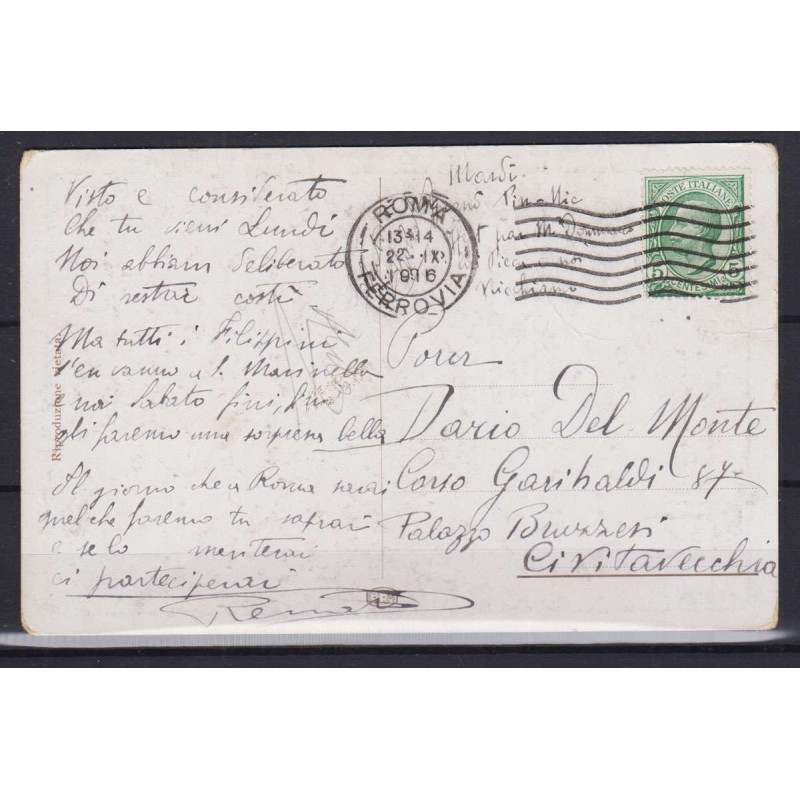 Visto e considerato
Che tu vieni Lundi
Noi abbiam deliberato
Di restar costì
Ma tutti i Filippini
s'en vanno a S. Marinella
noi Sabato
gli faremo una sorpresa bella
Il giorno che a Roma sarai
quel che faremo tu saprai
e se lo meriterai
ci parteciperai
Riproduzione vietata
Mardi
ROMA
13-14
22 · IX
1916
FERROVIA
POSTE ITALIANE
5 CENTESIMI 5
Pour
Dario Del Monte
Corso Garibaldi 87
Palazzo Bruzzesi
Civitavecchia